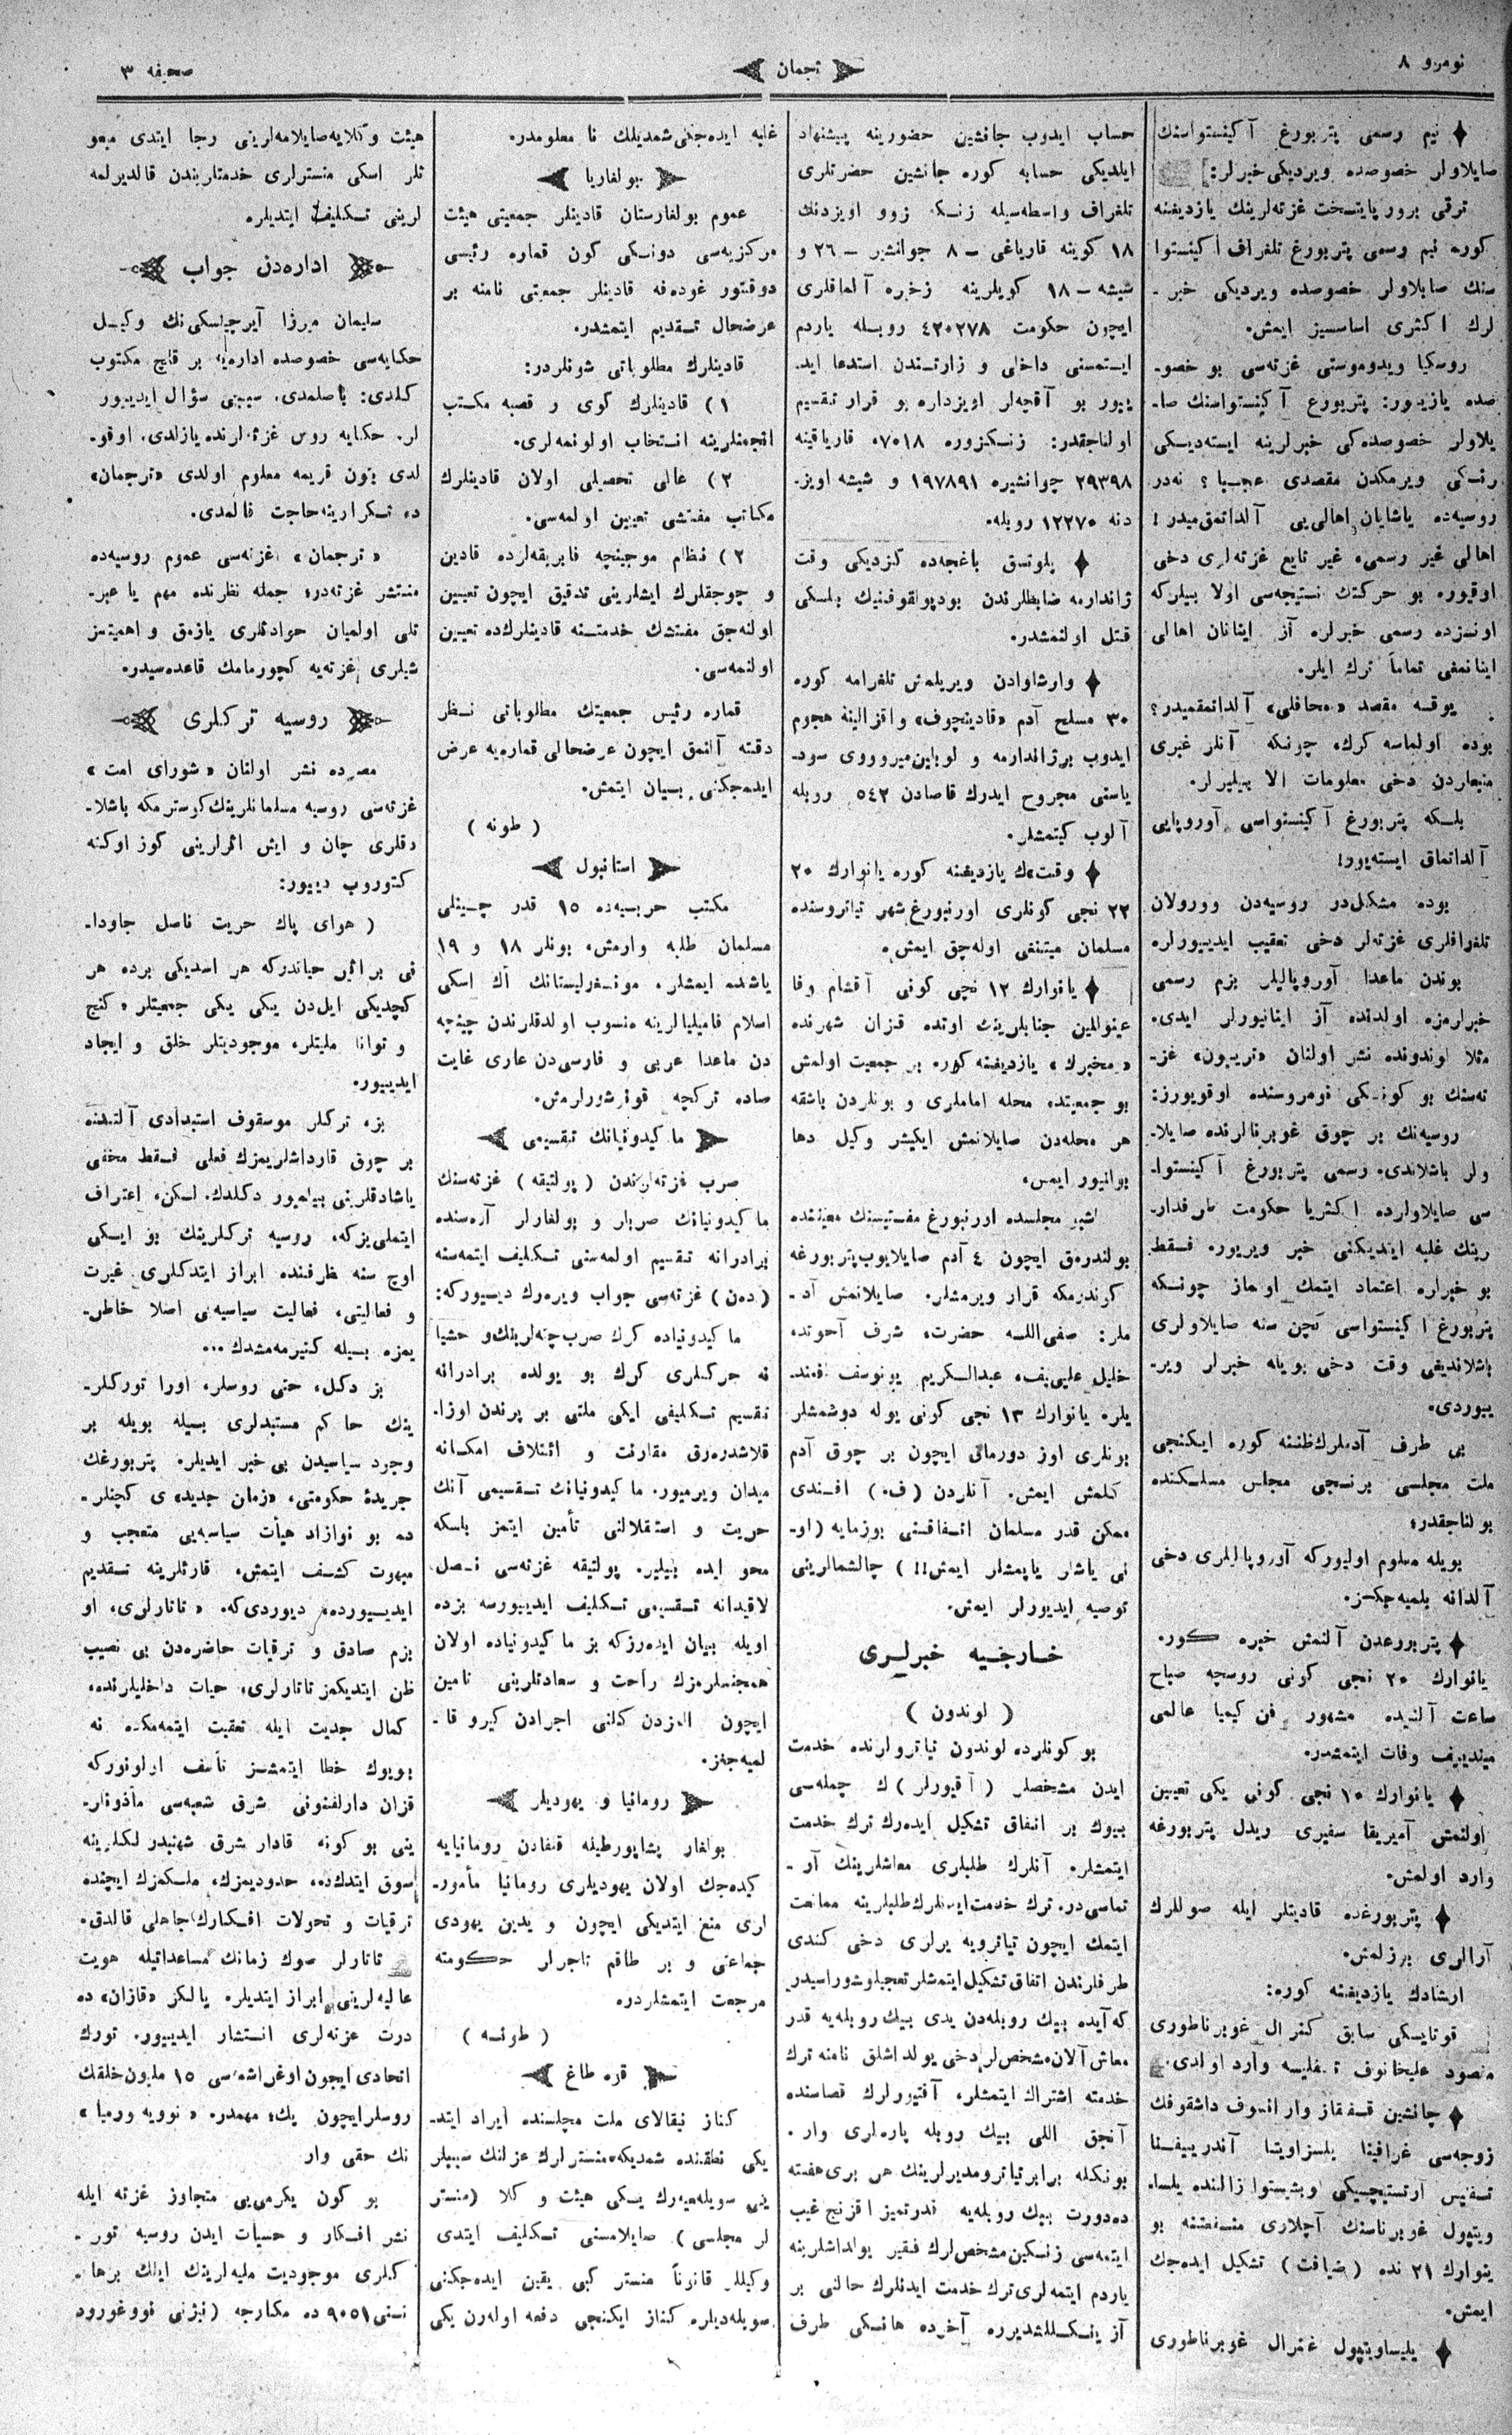 نومرو ٨
ترجمان
صحیفه ٣
نیم رسمی پتربورغ آكینستواسنك
صایلاولر خصوصده ویردیكی خبرلر:
ترقی برور پایتخت غزته‌لرینك یازدیغنه
كوره نیم رسمی پتربورغ تلغراف اكینستوا
سنك صایلاولر خصوصده ویردیكی خبر ـ
لرك اكثری اساسسیز ایمش.
روسكیا ویدوموستی غزته‌سی بو خصو ـ
صده یازیور: پتربورغ آكینستواسنك صا ـ
یلاولر خصوصده‌كی خبرلرینه ایسته‌دیكی
رنكی ویرمكدن مقصدی عجبا؟ نه‌در
روسیه‌ده یاشایان اهالی‌یی آلداتمق‌میدر!
اهالی غیر رسمی، غیر تابع غزته‌لری دخی
اوقیور، بو حركتك نتیجه‌سی اولا بیلركه
اونسزده رسمی خبرلره آز اینانان اهالی
اینانمغی تماماً ترك ایلر.
یوقسه مقصد «محافلی» آلداتمقمیدر؟
بوده اولماسه كرك، چونكه آنلر غیری
منبعلردن دخی معلومات آلا بیلیرلر.
بلكه پتربورغ آكینستواسی آوروپایی
آلداتماق ایسته‌یور!
بوده مشكل‌در روسیه‌دن وورولان
تلغرافلری غزته‌لر دخی تعقیب ایدییورلر.
بوندن ماعدا آوروپالیلر بزم رسمی
خبرلرمزه اولدنده آز اینانیورلر ایدی.
مثلا لوندونده نشر اولنان «تریبون» غز ـ
ته‌سنك بو كونكی نومروسنده اوقویورز:
روسیه‌نك بر چوق غوبرنالرنده صایلا ـ
ولر باشلاندی. رسمی پتربورغ آكینستوا ـ
سی صایلاولرده اكثریا حكومت طرفدار ـ
رینك غلبه ایتدیكنی خبر ویریور. فقط
بو خبرلره اعتماد ایتمك اولماز چونكه
پتربورغ اكینستواسی كچن سنه صایلاولری
باشلاندیغی وقت دخی بویله خبرلر ویر ـ
ییوردی.
بی طرف آدملرك ظننه كوره ایكنجی
ملت مجلسی برنجی مجلس مسلكنده
بولناجقدر؛
بویله معلوم اولیوركه آوروپالیلری دخی
آلدانه بلمیه‌جكز.
پتربورغدن آلنمش خبره كوره
یانوارك ٢٠ نجی كونی روسچه صباح
ساعت آلتیده مشهور فن كیمیا عالمی
میندیلیف وفات ایتمشدر.
یانوارك ١٠ نجی كونی یكی تعیین
اولنمش آمیریقا سفیری ریدل پتربورغه
وارد اولمش.
پتربورغده قادیتلر ایله صوللرك
آرالری برزلمش.
ارشادك یازدیغنه كوره:
قوتایسكی سابق كنرال غوبرناطوری
منصود علیخانوف تفلیسه وارد اولدی.
جانشین قفقاز وارانسوف داشقوفك
زوجه‌سی غرافینا یلیزاویتا آندرییفنا
تفلیس آرتستیچیسكی اوبشیستوا زالنده یلسا ـ
ویتپول غوبرناسنك آچلاری منفعتنه بو
ینوارك ٢١ نده (ضیافت) تشكیل ایده‌جك
ایمش.
یلیساویتپول غنرال غوبرناطوری
حساب ایدوب جانشین حضورینه پیشنهاد
ایلدیكی حسابه كوره جانشین حضرتلری
تلغراف واسطه‌سیله زنكه زوو اویزدنك
١٨ كوینه قاریاغی ـ ٨ جوانشیر ـ ٢٦ و
شیشه ـ ١٨ كویلرینه زخیره آلماقلری
ایچون حكومت ٤٢٠٢٧٨ روبله یاردم
ایتمسنی داخلی و زارتندن استدعا اید ـ
ییور بو آقچه‌لر اویزداره بو قرار تقسیم
اولناجقدر: زنكزوره ٧٠١٨٠ قاریاقینه
٢٩٣٩٨ جوانشیره ١٩٧٨٩١ و شیشه اویز ـ
دنه ١٢٢٧٠ روبله.
پلوتسق باغچه‌ده كزدیكی وقت
ژاندارمه ضابطلرندن بودپولقوفنیك بلسكی
قتل اولنمشدر.
وارشاوادن ویریلمش تلغرامه كوره
٣٠ مسلح آدم «قادینچوف» واقزالینه هجوم
ایدوب بر ژاندارمه و لوبلین‌میرووی سود ـ
یاسنی مجروح ایدرك قاصادن ٥٤٢ روبله
آلوب كیتمشلر.
وقت»ك یازدیغنه كوره یانوارك ٢٠
٢٢ نجی كونلری اورنبورغ شهر تیاتروسنده
مسلمان میتنغی اوله‌چق ایمش.
یانوارك ١٢ نجی كونی آقشام وفا
عینوالمین جنابلرینك اوتده قزان شهرنده
«مخبرك» یازدیغنه كوره بر جمعیت اولمش
بو جمعیتده محله امامدری و بونلردن باشقه
هر محله‌دن صایلانمش ایكیشر وكیل دها
بولنیور ایمش.
اشبو مجلسده اورنبورغ مفتیسنك معیتنده
بولندرمق ایچون ٤ آدم صایلایوب پتربورغه
كوندرمكه قرار ویرمشلر. صایلانمش آد ـ
ملر: صفی‌الله حضرت، شرف آخوند،
خلیل علییف، عبدالكریم یونوسف افند ـ
یلر. یانوارك ١٣ نجی كونی یوله دوشمشلر
بونلری اوز دورمالی ایچون بر چوق آدم
كلمش ایمش. آنلردن (ف.) افندی
ممكن قدر مسلمان اتفاقنی بوزمایه (او ـ
نی یاشلر یاپمشلر ایمش!!) چالشمالرینی
توصیه ایدیورلر ایمش.
خارجیه خبرلری
(لوندون)
بو كونلرده لوندون تیاترولرنده خدمت
ایدن مشخصلر (آقیورلر)ك جمله‌سی
بیوك بر اتفاق تشكیل ایده‌رك ترك خدمت
ایتمشلر. آنلرك طلبلری معاشلرینك آر ـ
تماسی‌در. ترك خدمت ایدنلرك طلبلرینه ممانعت
ایتمك ایچون تیاترویه یرلری دخی كندی
طرفلرندن اتفاق تشكیل ایتمشلر تعجبلوشوراسیدر
كه آیده بیك روبله‌دن یدی بیك روبله‌یه قدر
معاش آلان مشخص‌لر دخی یولداشلق نامنه ترك
خدمته اشتراك ایتمشلر، آقتیورلرك قصاسنده
آنجق اللی بیك روبله پاره‌لری وار.
بونكله برابر تیاترومدیرلرینك هر بری هفته
ده دورت بیك روبله‌یه قدر تمیز اقزنج غیب
ایتمه‌سی زنكین مشخص‌لرك فقیر یولداشلرینه
یاردم ایتمه‌لری ترك خدمت ایدنلرك حالنی بر
آز ینكللشدیرر، آخرده هانكی طرف
غلبه ایده‌جكی شمدیلك نا معلومدر.
بولغاریا
عموم بولغارستان قادینلر جمعیتی هیئت
مركزیه‌سی دونكی كون قماره رئیسی
دوقتور غوده‌فه قادینلر جمعیتی نامنه بر
عرضحال تقدیم ایتمشدر.
قادینلرك مطلوباتی شونلردر:
١) قادینلرك كوی و قصبه مكتب
انجمنلرینه انتخاب اولونمه‌لری.
٢) عالی تحصیلی اولان قادینلرك
مكاتب مفتشی تعیین اولمه‌سی.
٢) نظام موجبنچه فابریقه‌لرده قادین
و چوجقلرك ایشلرینی تدقیق ایچون تعیین
اولنه‌جق مفتشك خدمتنه قادینلرك‌ده تعیین
اولنمه‌سی.
قماره رئیس جمعیتك مطلوباتی نظر
دقته آلنمق ایچون عرضحالی قماره‌یه عرض
ایده‌جكنی بیان ایتمش.
(طونه)
استانبول
مكتب حربیه‌ده ١٥ قدر چینلی
مسلمان طلبه وارمش، بونلر ١٨ و ١٩
یاشده ایمشلر، مونغولستانك اك اسكی
اسلام فامیلیالرینه منسوب اولدقلرندن چینچه
دن ماعدا عربی و فارسی‌دن عاری غایت
ساده تركچه قونوشورلرمش.
ماكیدونیانك تقسیمی
صرب غزته‌لرندن (پولتیقه) غزته‌سنك
ماكیدونیانك صربلر و بولغارلر آره‌سنده
برادرانه تقسیم اولمه‌سنی تكلیف ایتمه‌سنه
(ده‌ن) غزته‌سی جواب ویره‌رك دییوركه:
ماكیدونیاده كرك صرب‌چته‌لرینك و حشیا
نه حركتلری كرك بو یولده برادرانه
تقسیم تكلیفی ایكی ملتی بر برندن اوزا ـ
قلاشدره‌رق مقارنت و ائتلاف امكانه
میدان ویرمیور. ماكیدونیانك تقسیمی آنك
حریت و استقلالنی تأمین ایتمز بلكه
محو ایده بیلیر. پولتیقه غزته‌سی نصل
لاقیدانه تقسیمی تكلیف ایدییورسه بزده
اویله بیان ایده‌رزكه بز ماكیدونیاده اولان
همجنسلرمزك راحت و سعادتلرینی تامین
ایچون المزدن كلنی اجرادن كیرو قا ـ
لمیه‌جغز.
رومانیا و یهودیلر
بولغار پشاپورطیله قنفادن رومانیایه
كیده‌جك اولان یهودیلری رومانیا مأمور ـ
لری منع ایتدیكی ایچون و یدین یهودی
جماعتی و بر طاقم تاجرلر حكومته
مرجعت ایتمشلردر.
(طونه)
قره طاغ
كناز نیقالای ملت مجلسنده ایراد ایتد ـ
یكی نطقنده شمدیكه منسترلرك عزلنك سببلر
ینی سویله‌میه‌رك یسكی هیئت و كلا (منستر
لر مجلسی) صایلامسنی تكلیف ایتدی
وكیللر قانوناً منستر كبی یقین ایده‌جكنی
سویله‌دیلر. كناز ایكنجی دفعه اوله‌رن یكی
هیئت وكلایه‌صایلامه‌لرینی رجا ایتدی مبعو
ثلر اسكی منسترلری خدمتلریندن قالدیرلمه
لرینی تكلیف ایتدیلر.
اداره‌دن جواب
سلیمان میرزا آیرچینسكی‌نك وكیل
حكایه‌سی خصوصده اداره‌یه بر قاچ مكتوب
كلدی: باصلمدی. سببنی سؤال ایدییور
لر. حكایه روس غزته‌لرنده یازلدی، اوقو ـ
لدی بتون قریمه معلوم اولدی «ترجمان»
ده تكرارینه حاجت قالمدی.
«ترجمان» غزته‌سی عموم روسیه‌ده
منتشر غزته‌در؛ جمله نظرنده مهم یا عبر ـ
تلی اولمیان حوادثلری یازمق و اهمیتسز
شیلری غزته‌یه كچورمامك قاعده‌سیدر.
روسیه تركلری
مصرده نشر اولنان «شورای امت»
غزته‌سی روسیه مسلمانلرینك كوسترمكه باشلا ـ
دقلری جان و ایش اثرلرینی كوز اوكنه
كتوروب دییور:
(هوای پاك حریت ناصل جاودا ـ
نی براثر حیاتدركه هر اسدیكی یرده هر
كچدیكی ایل‌دن یكی یكی جمعیتلر «كنج
و توانا ملیتلر، موجودیتلر خلق و ایجاد
ایدییور.
بز، تركلر موسقوف استبدادی آلتنده
بر چوق قارداشلریمزك فعلی فقط مخفی
یاشادقلرینی بیلمیور دكلدك. لكن، اعتراف
ایتملی‌یزكه، روسیه تركلرینك بو ایكی
اوچ سنه ظرفنده ابراز ایتدكلری غیرت
و فعالیتی، فعالیت سیاسیه‌یی اصلا خاطر ـ
یمزه بیله كتیرمه‌مشدك...
بز دكل، حتی روسلر، اورا توركلر ـ
ینك حاكم مستبدلری بیله بویله بر
وجود سیاسیدن بی خبر ایدیلر. پتربورغك
جریدهٔ حكومتی، «زمان جدید»ی كچنلر ـ
ده بو نوازاد هیأت سیاسیه‌یی متعجب و
مبهوت كشف ایتمش، قارئلرینه تقدیم
ایدییورده، دیوردی‌كه. «تاتارلری، او
بزم صادق و ترقیات حاضره‌دن بی نصیب
ظن ایتدیكمز تاتارلری، حیات داخلیلرنده،
كمال جدیت ایله تعقیب ایتمه‌مكده نه
بویوك خطا ایتمشز تأسف اولونوركه
قزان دارلفنونی شرق شعبه‌سی مأذونلر ـ
ینی بو كونه قادار شرق شهبندرلكلرینه
سوق ایتدك‌ده، حدودیمزك، ملكمزك ایچنده
ترقیات و تحولات افكارك جاهلی قالدق.
تاتارلر صوك زمانك مساعداتیله هویت
عالیه‌لرینی ابراز ایتدیلر. یالكز «قازان» ده
درت غزته‌لری انتشار ایدییور. تورك
اتحادی ایچون اوغراشه‌سی ١٥ ملیون خلقك
روسلرایچون یك؛ مهمدر. «نوویه ورمیا»
نك حقی وار
بو كون یكرمی‌یی متجاوز غزته ایله
نشر افكار و حسیات ایدن روسیه تور ـ
كلری موجودیت ملیه‌لرینك ایلك برها ـ
ننی ٩٠٥١ ده مكارجه (نیژنی نووغورود